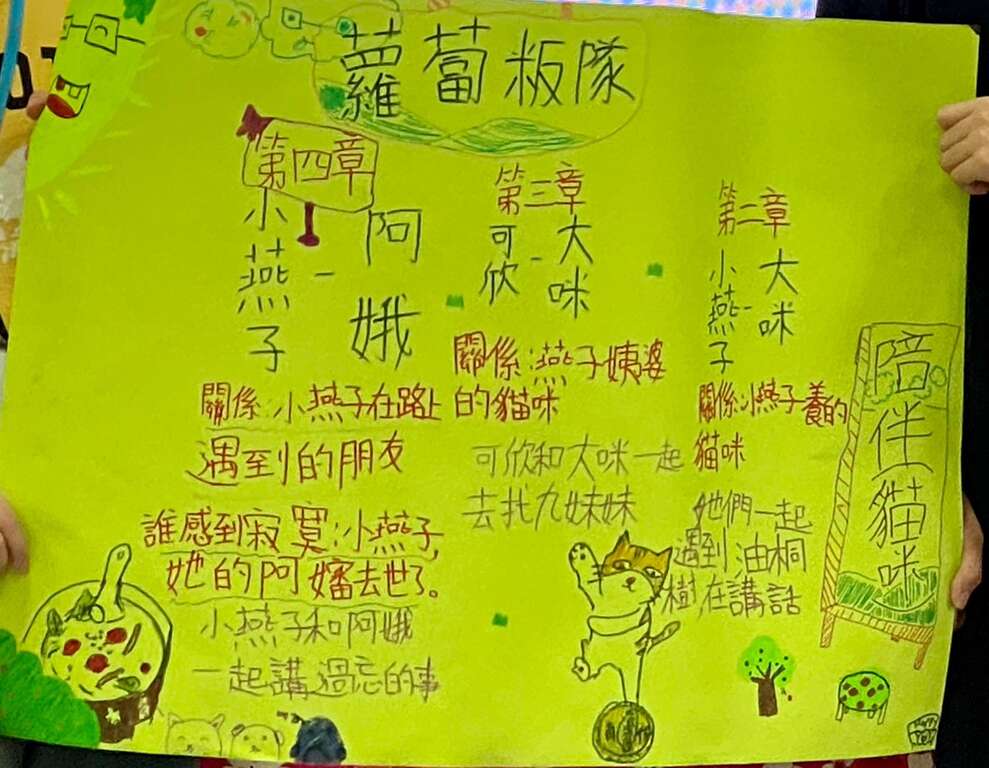 蘿蔔粄隊
陪伴貓咪
第二章
大咪
-
小燕子
關係:小燕子養的
貓咪
她們一起
遇到油桐
樹在講話
第三章
大咪
-
可欣
關係:燕子姨婆
的貓咪
可欣和大咪一起
去找九妹妹
第四章
阿娥
-
小燕子
關係:小燕子在路上
遇到的朋友
誰感到寂寞:小燕子,
她的阿嬸去世了。
小燕子和阿娥
一起講過忘的事